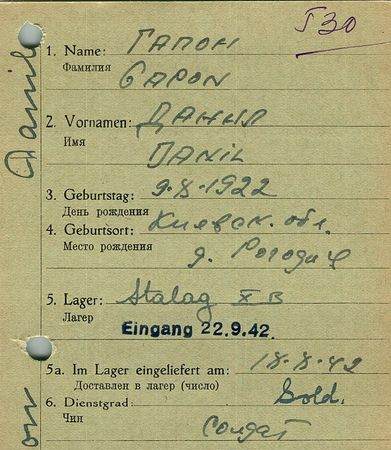 530
1. Name: Гапон
Фамилия
Gapon
2. Vornamen: Данил
Имя
Danil
3. Geburtstag: 9.X.1922
День рождения
4. Geburtsort: Киевск. обл.
Место рождения
д. Рогодич
5. Lager: Stalag XB
Лагер
Eingang 22.9.42.
5a. Im Lager eingeliefert am: 18.X.42
Доставлен в лагер (число)
6. Dienstgrad: Sold.
Чин
Солдат
Danil
on